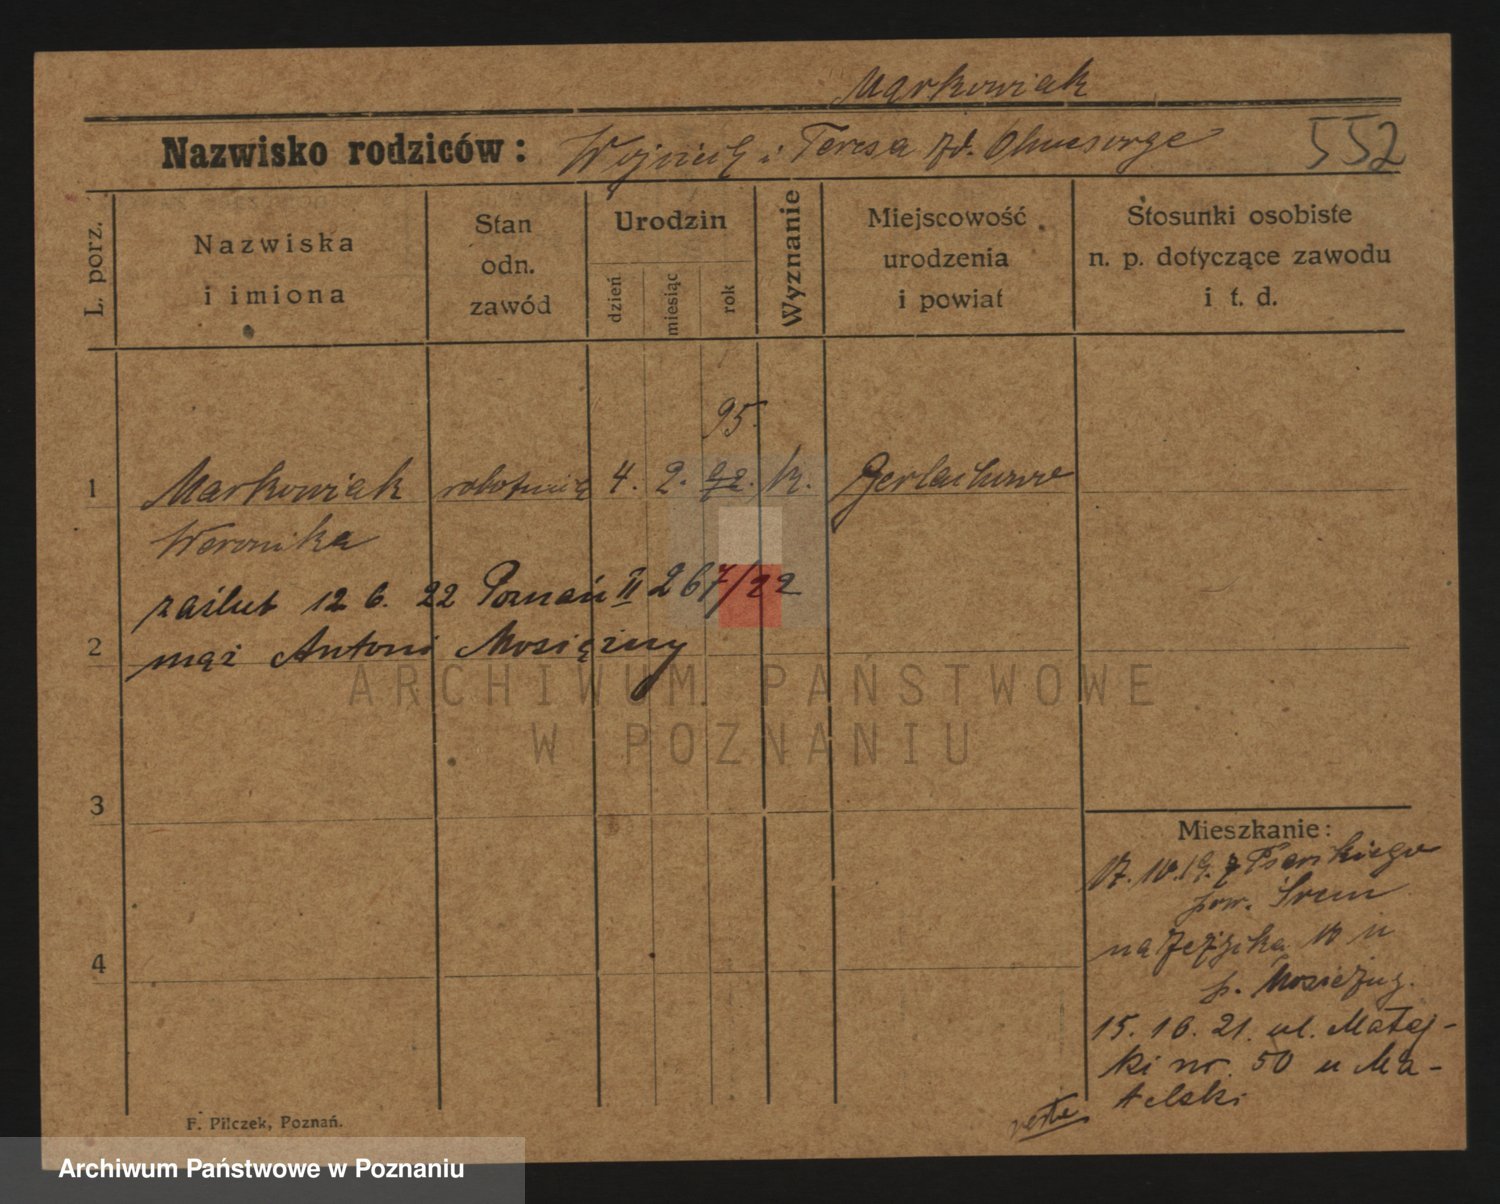 Markowiak
Nazwisko rodziców: Wojciech i Teresa zd. Ohnesorge 552
L. porz.
Nazwiska
i imiona
Stan
odn.
zawód
Urodzin
dzień
miesiąc
rok
Wyznanie
Miejscowość
urodzenia
i powiat
Stosunki osobiste
n. p. dotyczące zawodu
i t. d.
95.
1 Markowiak robotnica 4. 2. 92. k. Gerlachowo
Weronika
zaślub 12 6. 22 Poznań II 267/22
2 mąż Antoni Mosiężny
3
4
Mieszkanie:
17. 10. 19. z
pow. Śrem
na Jeżycka 10 u
p. Mosiężny.
15. 10. 21. ul. Matej-
ki nr. 50 u Ma-
telski
verte
F. Pilczek, Poznań.
ARCHIWUM PAŃSTWOWE
W POZNANIU
Archiwum Państwowe w Poznaniu